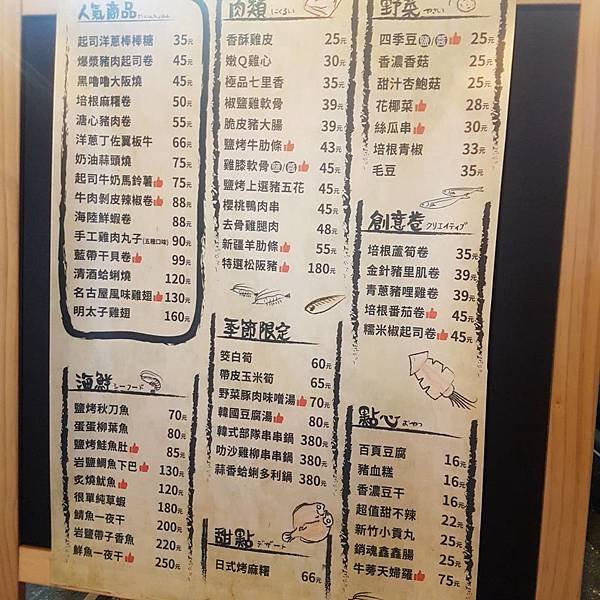 人氣商品
起司洋蔥棒棒糖 35元
爆漿豬肉起司卷 45元
黑嚕嚕大阪燒 45元
培根麻糬卷 50元
溏心豬肉卷 55元
洋蔥丁佐翼板牛 66元
奶油蒜頭燒 75元
起司牛奶馬鈴薯 75元
牛肉剝皮辣椒卷 88元
海陸鮮蝦卷 88元
手工雞肉丸子(五種口味) 90元
藍帶干貝卷 99元
清酒蛤蜊燒 120元
名古屋風味雞翅 130元
明太子雞翅 160元
海鮮 シーフード
鹽烤秋刀魚 70元
蛋蛋柳葉魚 80元
鹽烤鮭魚肚 85元
岩鹽鯛魚下巴 130元
炙燒魷魚 120元
很單純草蝦 180元
鯖魚一夜干 200元
岩鹽帶子香魚 220元
鮮魚一夜干 250元
肉類 にくるい
香酥雞皮 25元
嫩Q雞心 30元
極品七里香 35元
椒鹽雞軟骨 39元
脆皮豬大腸 39元
鹽烤牛肋條 43元
雞膝軟骨(鹽/醬) 45元
鹽烤上選豬五花 45元
櫻桃鴨肉串 45元
去骨雞腿肉 48元
新疆羊肋條 55元
特選松阪豬 180元
季節限定
筊白筍 60元
帶皮玉米筍 65元
野菜豚肉味噌湯 70元
韓國豆腐湯 80元
韓式部隊串串鍋 380元
叻沙雞柳串串鍋 380元
蒜香蛤蜊多利鍋 380元
甜點 デザート
日式烤麻糬 66元
野菜 やさい
四季豆(鹽/醬) 25元
香濃香菇 25元
甜汁杏鮑菇 25元
花椰菜 28元
絲瓜串 30元
培根青椒 33元
毛豆 35元
創意卷 クリエイティブ
培根蘆筍卷 35元
金針豬里肌卷 39元
青蔥豬哩雞卷 39元
培根番茄卷 45元
糯米椒起司卷 45元
點心 おやつ
百頁豆腐 16元
豬血糕 16元
香濃豆干 16元
超值甜不辣 22元
新竹小貢丸 25元
銷魂鑫鑫腸 25元
牛蒡天婦羅 75元